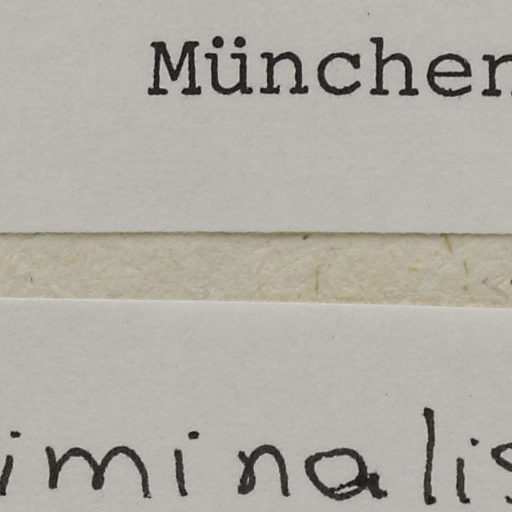 München
iminalis